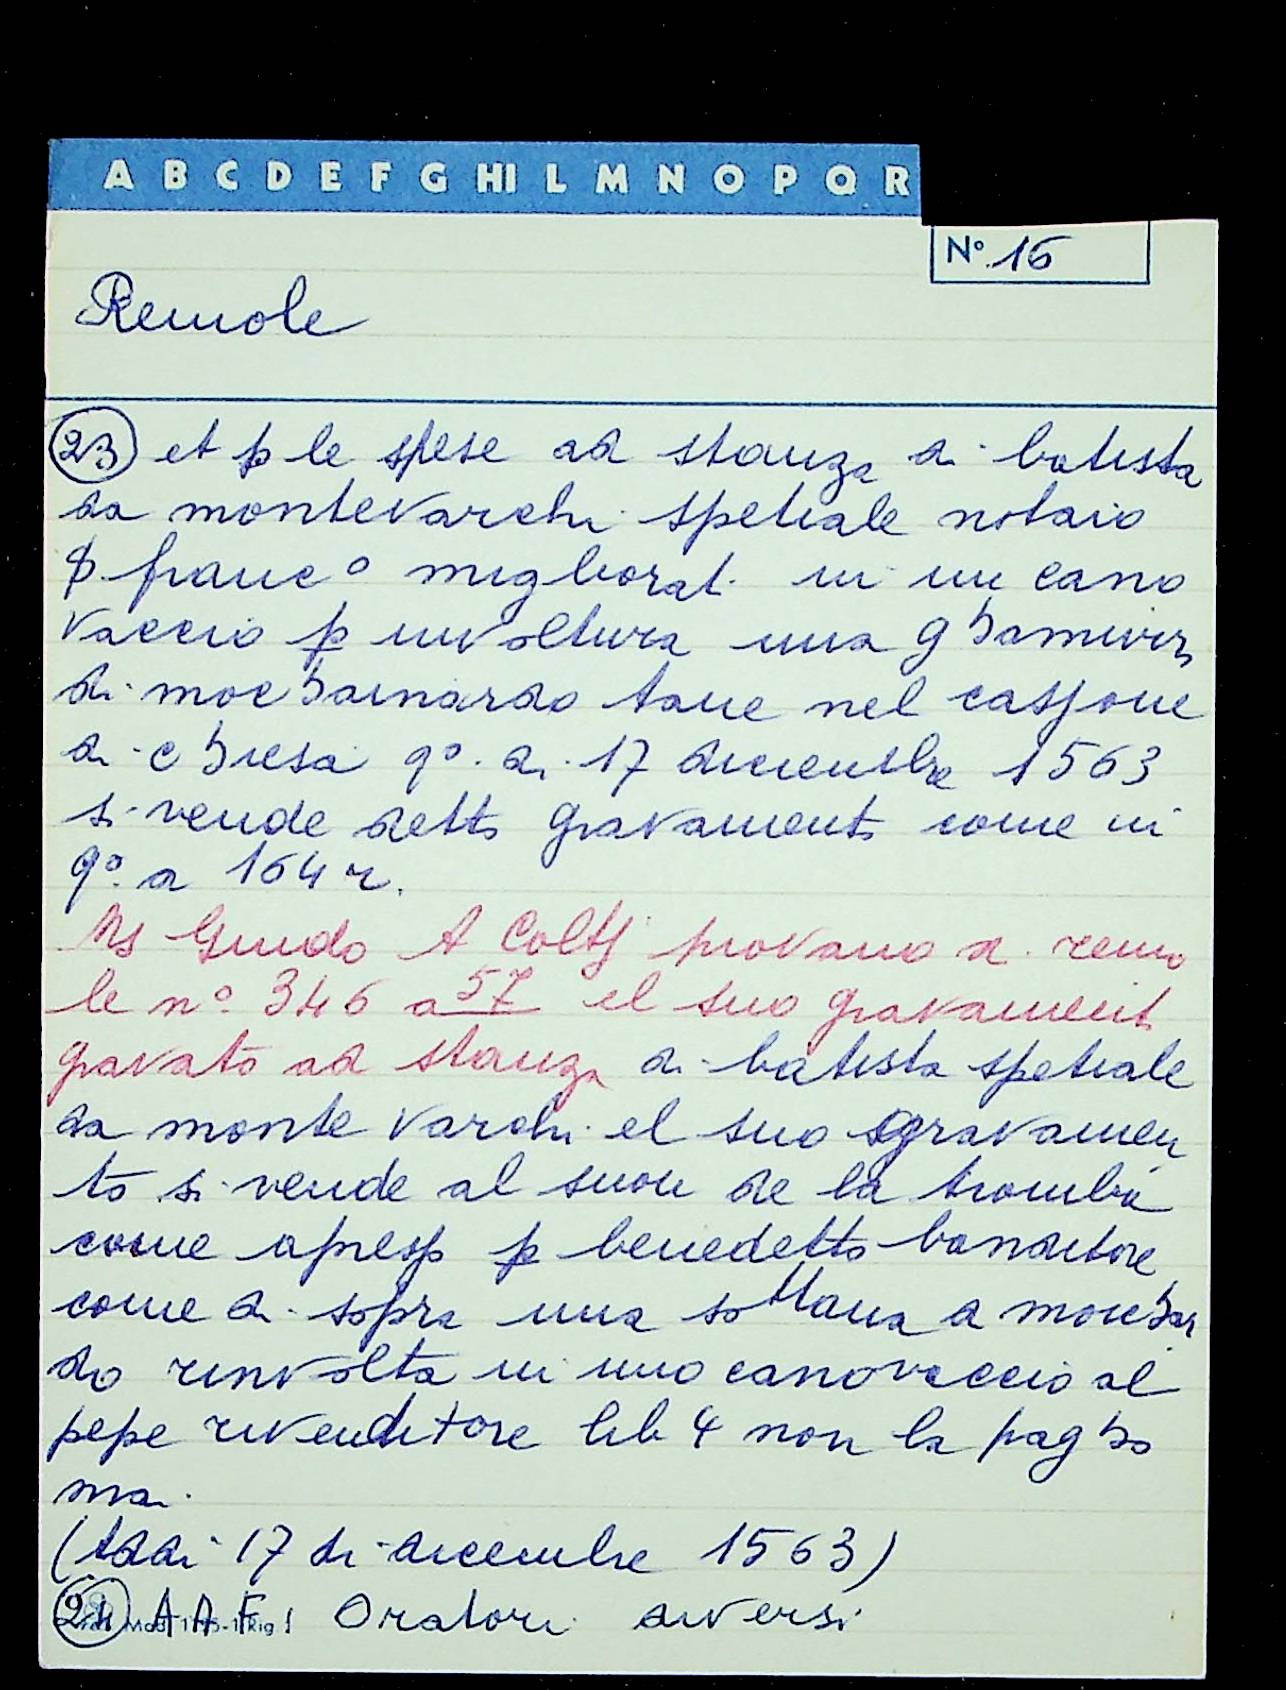 A B C D E F G HI L M N O P Q R
N° 16
Remole
23 et p le spese ad stanza di batista
da montevarchi spetiale notaio
p. franc° migliorat. in un cano
vaccio p involtura una ghamurra
di moc hainardo tane nel cassone
di chiesa q°. di 17 dicienbre 1563
si vende detto gravamento come in
q°. a 164 r.
Ms Guido A Colti provano a remo
le n° 346 a 57 el suo gravament
gravato ad stanza di batista spetiale
da monte varchi el suo gravamen
to si vende al suon de la tromba
come apresso p benedetto banditore
come di sopra una sottana a mochar
do rinvolta in uno canovaccio al
pepe rivenditore lib 4 non la pagho
mai.
(Addi 17 di dicembre 1563)
24 A A F. Oratori diversi